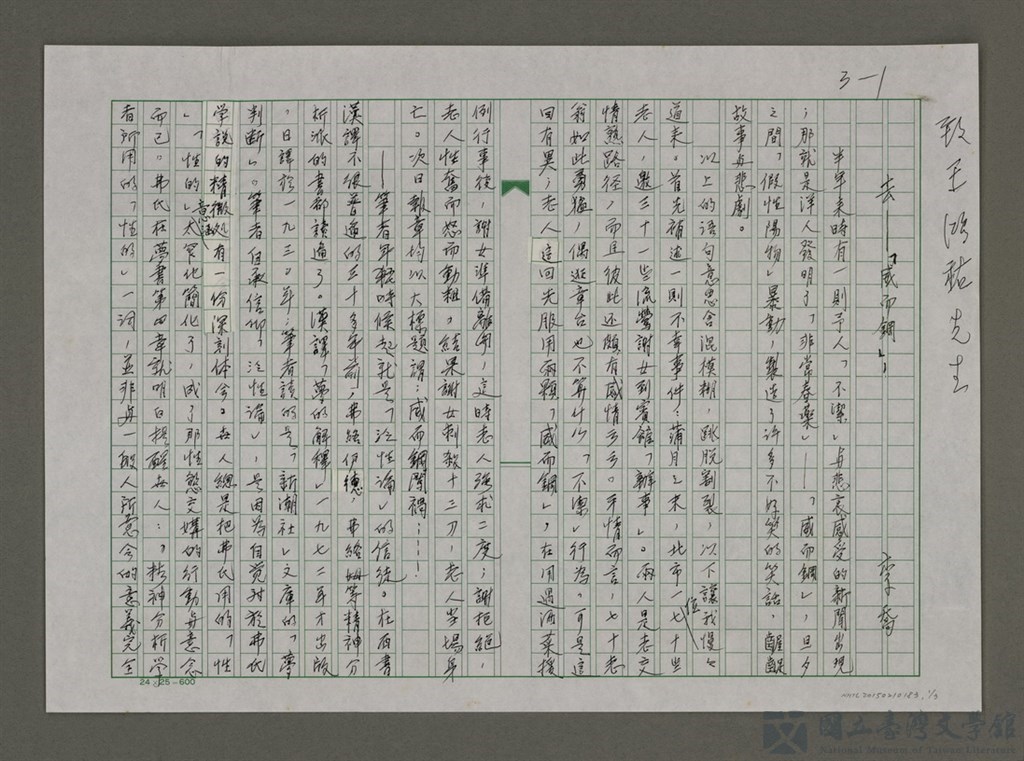 3-1
致王鴻祐先生
去——「威而鋼」；
李喬
半年來時有一則予人「不潔」与悲哀感受的新聞出現
；那就是洋人發明了「非常春藥」——「威而鋼」，旦夕
之間「假性陽物」暴動，製造了許多不好笑的笑話，齷齪
故事与悲劇。
以上的語句意思含混模糊，跳脱割裂，以下讓我慢々
道來。首先補述一則不幸事件：蒲月之末，北市一位七十些
老人，邀三十一些流鶯謝女到賓館「辦事」。兩人是老交
情熟路径，而且彼此还頗有感情云云。平情而言，七十老
翁如此勇猛，偶逛章台也不算什么「不潔」行為。可是這
回有異；老人這回先服用兩顆「威而鋼」，在用過酒菜後
例行事後，謝女準備離開，這時老人強求二度；謝拒絕，
老人性奮而怒而動粗。結果謝女刺殺十三刀，老人當場身
亡。次日報章均以大標題謂：威而鋼闖禍……！
——筆者年輕時候起就是「泛性論」的信徒。在西書
漢譯不很普遍的三十多年前，弗洛伊德、弗洛姆等精神分
析派的書都讀過了。漢譯「夢的解釋」一九七二年才出版
。日譯於一九三〇年；筆者讀的是「新潮社」文庫的「夢
判斷」。筆者自承信仰「泛性論」，是因為自覺对於弗氏
学說的精微処有一份深刻体会。世人總是把弗氏用的「性
」「性的」意涵太窄化簡化了，成了那性慾交媾的行動与意念
而已。弗氏在夢書第四章就明白提醒世人：，精神分析学
者所用的「性的」一詞，並非与一般人所意会的意義完全
24×25=600
NMTL20150210183, 1/3
國立臺灣文學館
National Museum of Taiwan Literature